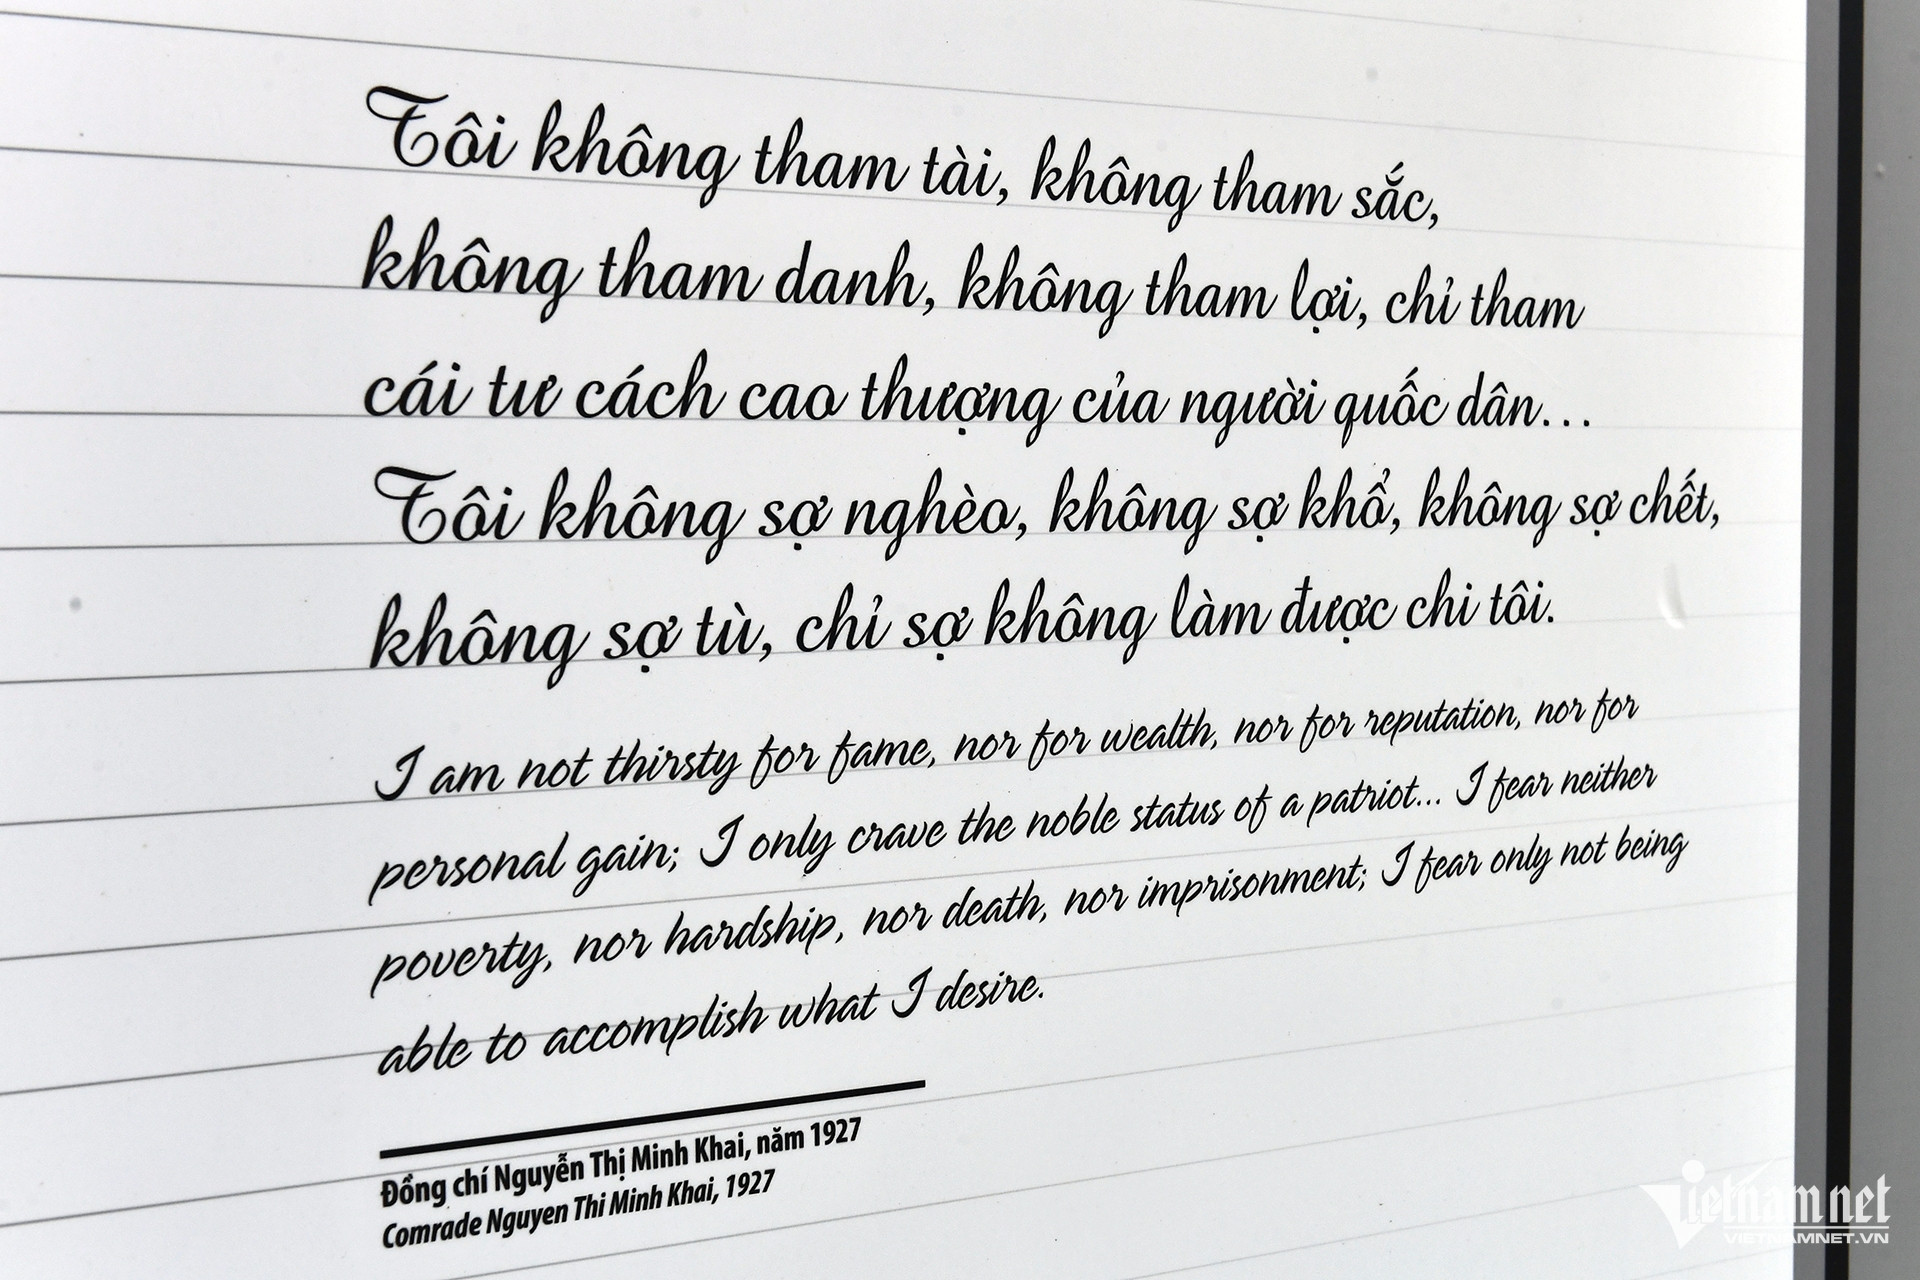 Tôi không tham tài, không tham sắc,
không tham danh, không tham lợi, chỉ tham
cái tư cách cao thượng của người quốc dân...
Tôi không sợ nghèo, không sợ khổ, không sợ chết,
không sợ tù, chỉ sợ không làm được chi tôi.
I am not thirsty for fame, nor for wealth, nor for reputation, nor for
personal gain; I only crave the noble status of a patriot... I fear neither
poverty, nor hardship, nor death, nor imprisonment; I fear only not being
able to accomplish what I desire.
Đồng chí Nguyễn Thị Minh Khai, năm 1927
Comrade Nguyen Thi Minh Khai, 1927
Vietnamnet
VIETNAMNET.VN